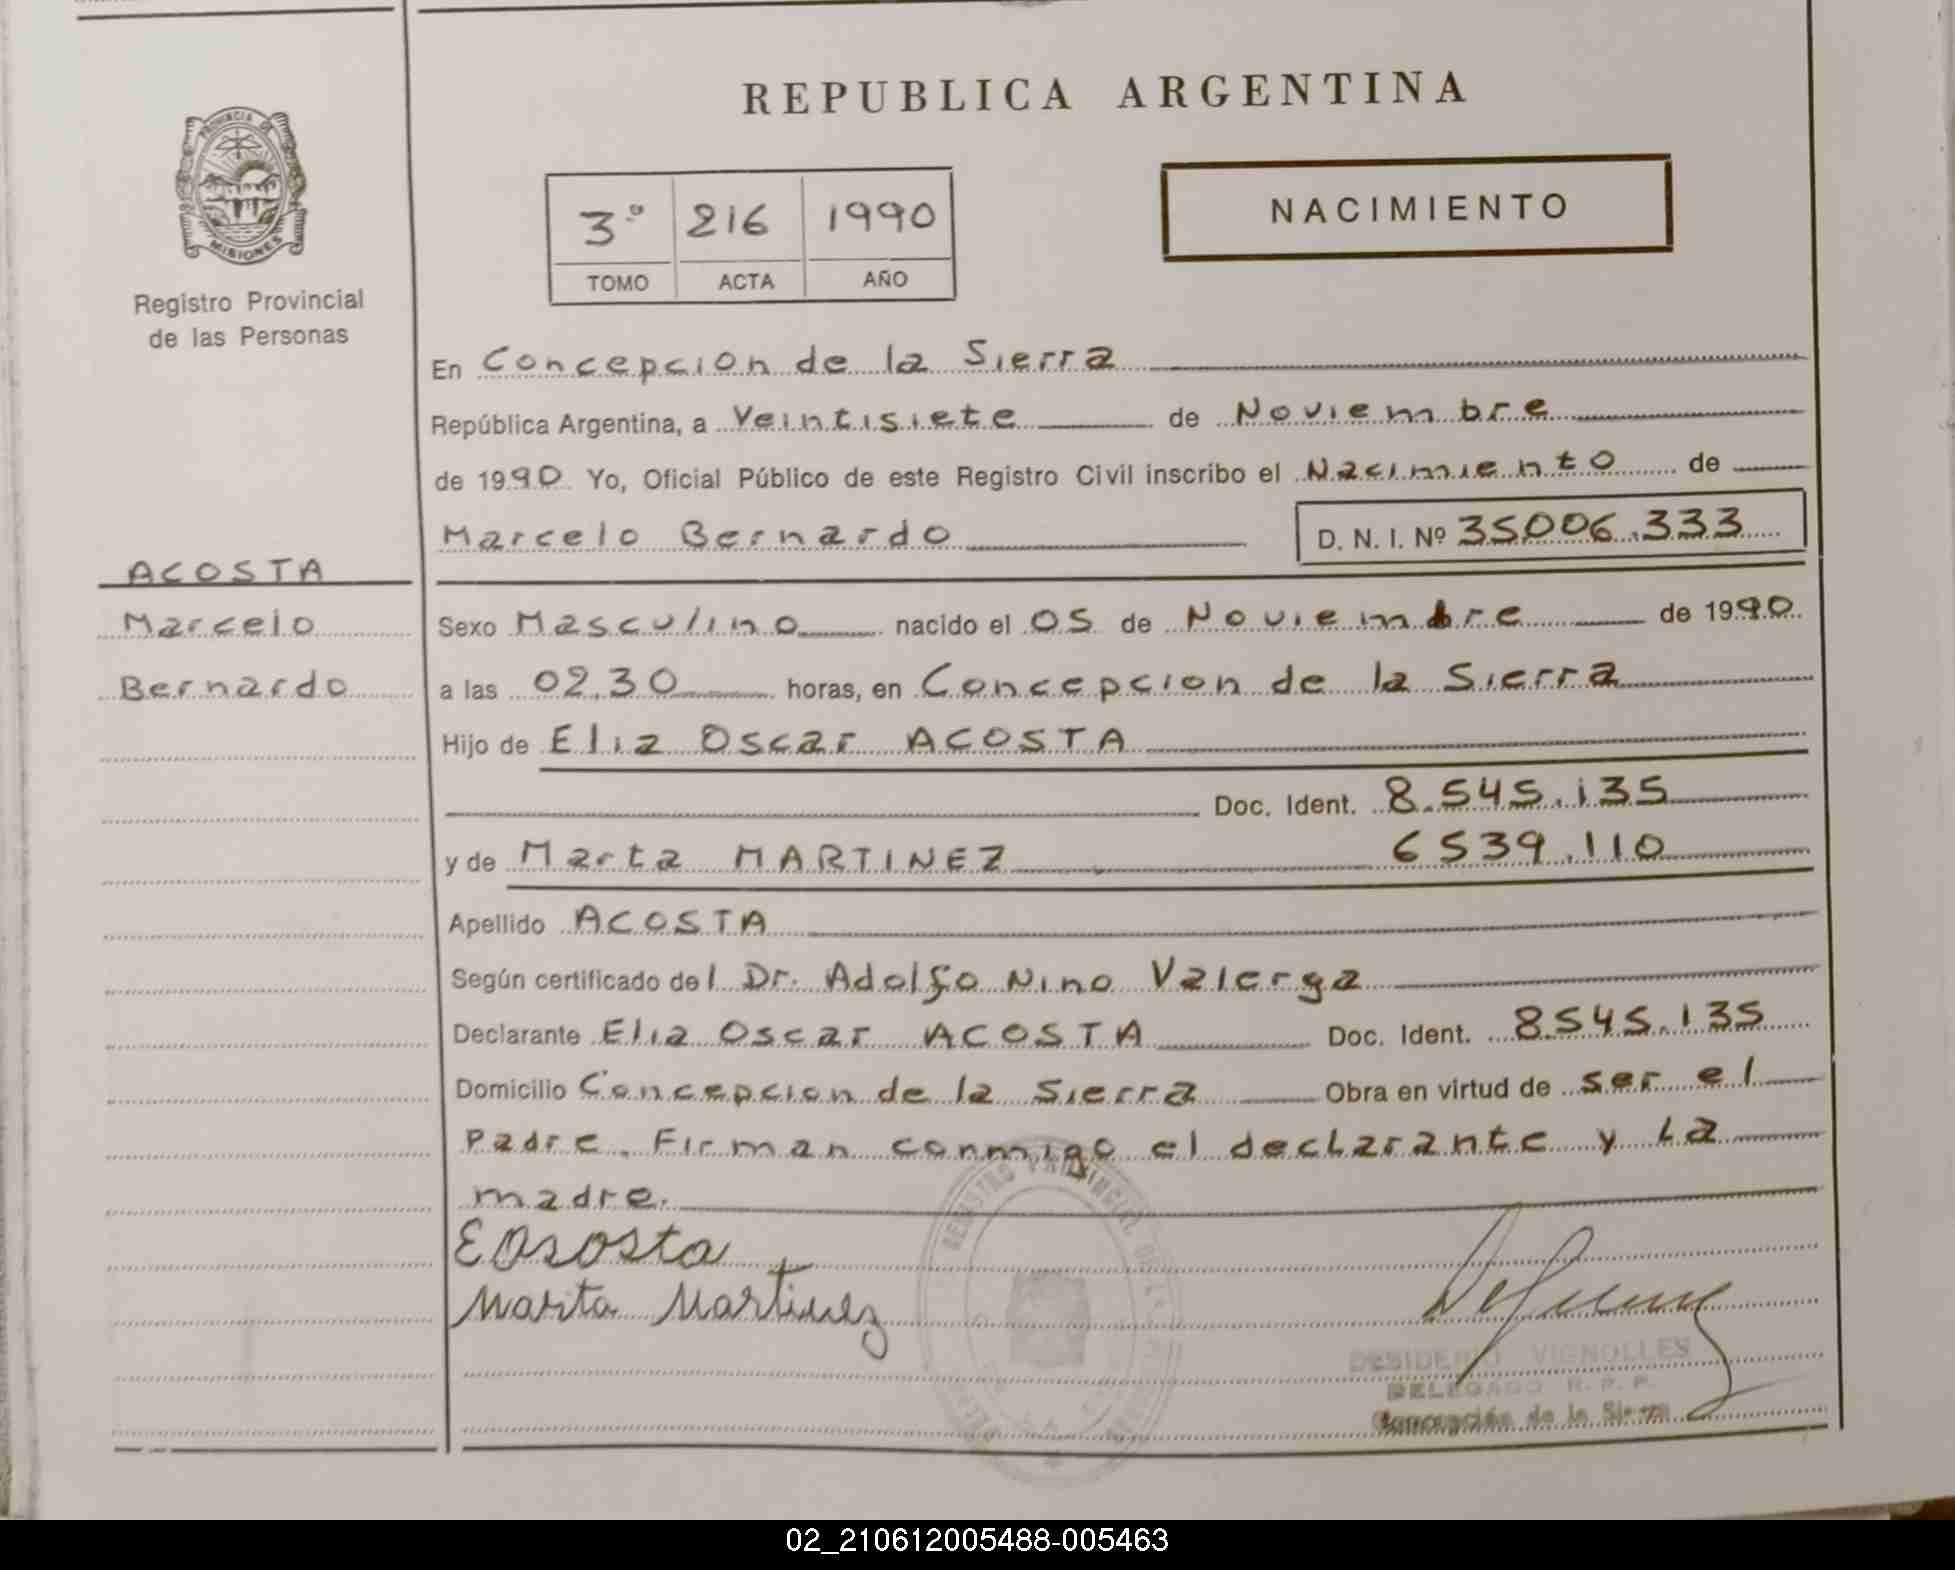 REPUBLICA ARGENTINA
PROVINCIA DE
MISIONES
Registro Provincial
de las Personas
3º 216 1990
TOMO ACTA AÑO
NACIMIENTO
En Concepcion de la Sierra
República Argentina, a Veintisiete de Noviembre
de 1990 Yo, Oficial Público de este Registro Civil inscribo el Nacimiento de
Marcelo Bernardo D. N. I. Nº 35006.333
ACOSTA
Marcelo
Bernardo
Sexo Masculino nacido el 05 de Noviembre de 1990
a las 02.30 horas, en Concepcion de la Sierra
Hijo de Elia Oscar ACOSTA
Doc. Ident. 8.545.135
y de Marta MARTINEZ 6539.110
Apellido ACOSTA
Según certificado del Dr. Adolfo Nino Valerga
Declarante Elia Oscar ACOSTA Doc. Ident. 8545.135
Domicilio Concepcion de la Sierra Obra en virtud de ser el
Padre. Firman conmigo el declarante y La
madre.
E Acosta
Marta Martinez
REGISTRO PROVINCIAL DE LAS
DESIDERIO VIGNOLLES
DELEGADO R. P. P.
Concepción de la Sierra
02_210612005488-005463